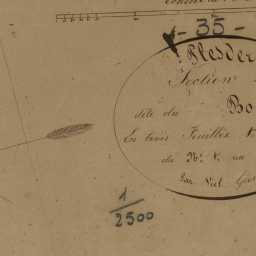 - 35 -
Plesder
Section
dite du Bo
En trois Feuilles N
du N° 1. au
Par
1/2500